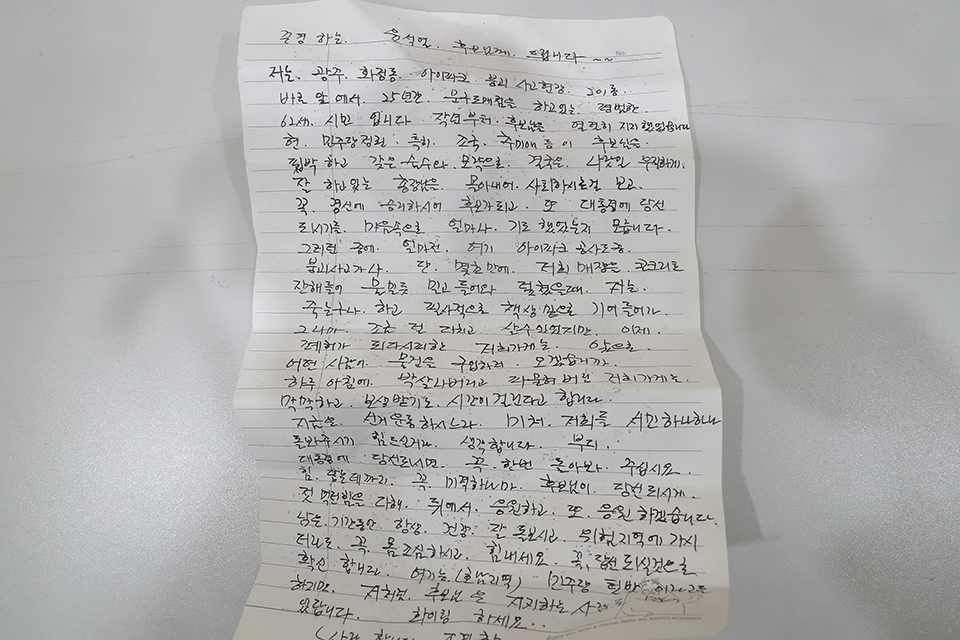 존경 하는. 윤석열. 후보님께. 드립니다 ~~
No.
저는. 광주. 화정동. 아이파크. 붕괴 사고현장. 201동.
바로 앞에서. 25년간. 문구도매점을 하고있는 평범한.
62세. 시민 입니다. 작년부터. 후보님을 열렬히 지지했었습니다
현. 민주당정권. 특히. 조국. 추미애 등 이 후보님을.
핍박 하고 갖은 술수와. 모략으로. 결국은 나랏일
잘 하고있는 총장님을. 몰아내어. 사퇴하시는걸 보고.
꼭. 경선에 승리하시어 후보가되고. 또 대통령에 당선
되시기를. 마음속으로 얼마나. 기도했었는지 모릅니다.
그러던 중에. 얼마전. 여기 아이파크 공사도중.
붕괴사고가 나. 단. 몇초만에. 저희 매장은. 콘크리트
잔해들이 물밀듯 밀고 들어와 덮쳤을때. 저는.
죽는구나. 하고 필사적으로 책상 밑으로 기어들어가.
그나마. 조금 덜 다치고 살수 있었지만. 이제.
폐허가 되다시피한 저희가게는. 앞으로.
어떤 사람이. 물건을 구입하러. 오겠습니까.
하루 아침에. 박살나버리고 파묻혀 버린 저희가게는.
막막하고. 보상받기도. 시간이 걸린다고 합니다.
지금은. 선거운동하시느라. 미처. 저희를 서민 하나하나
돌봐주시기 힘드신거라 생각합니다. 부디.
대통령에 당선되시면. 꼭. 한번 돌아봐. 주십시요.
힘. 닿는데까지. 꼭 미력하나마. 후보님이. 당선되시게.
젖 먹던힘을 다해. 뒤에서. 응원하고. 또 응원 하겠습니다.
남은. 기간동안 항상. 건강. 잘 돌보시고. 위험지역에 가시
더라도. 꼭. 몸조심하시고. 힘내세요. 꼭. 당선 되실것으로
확신 합니다. 여기는 (호남지역) 민주당 텃밭 이라고들
하지만. 저처럼. 후보님 을 지지하는
있답니다. 화이팅 하세요..